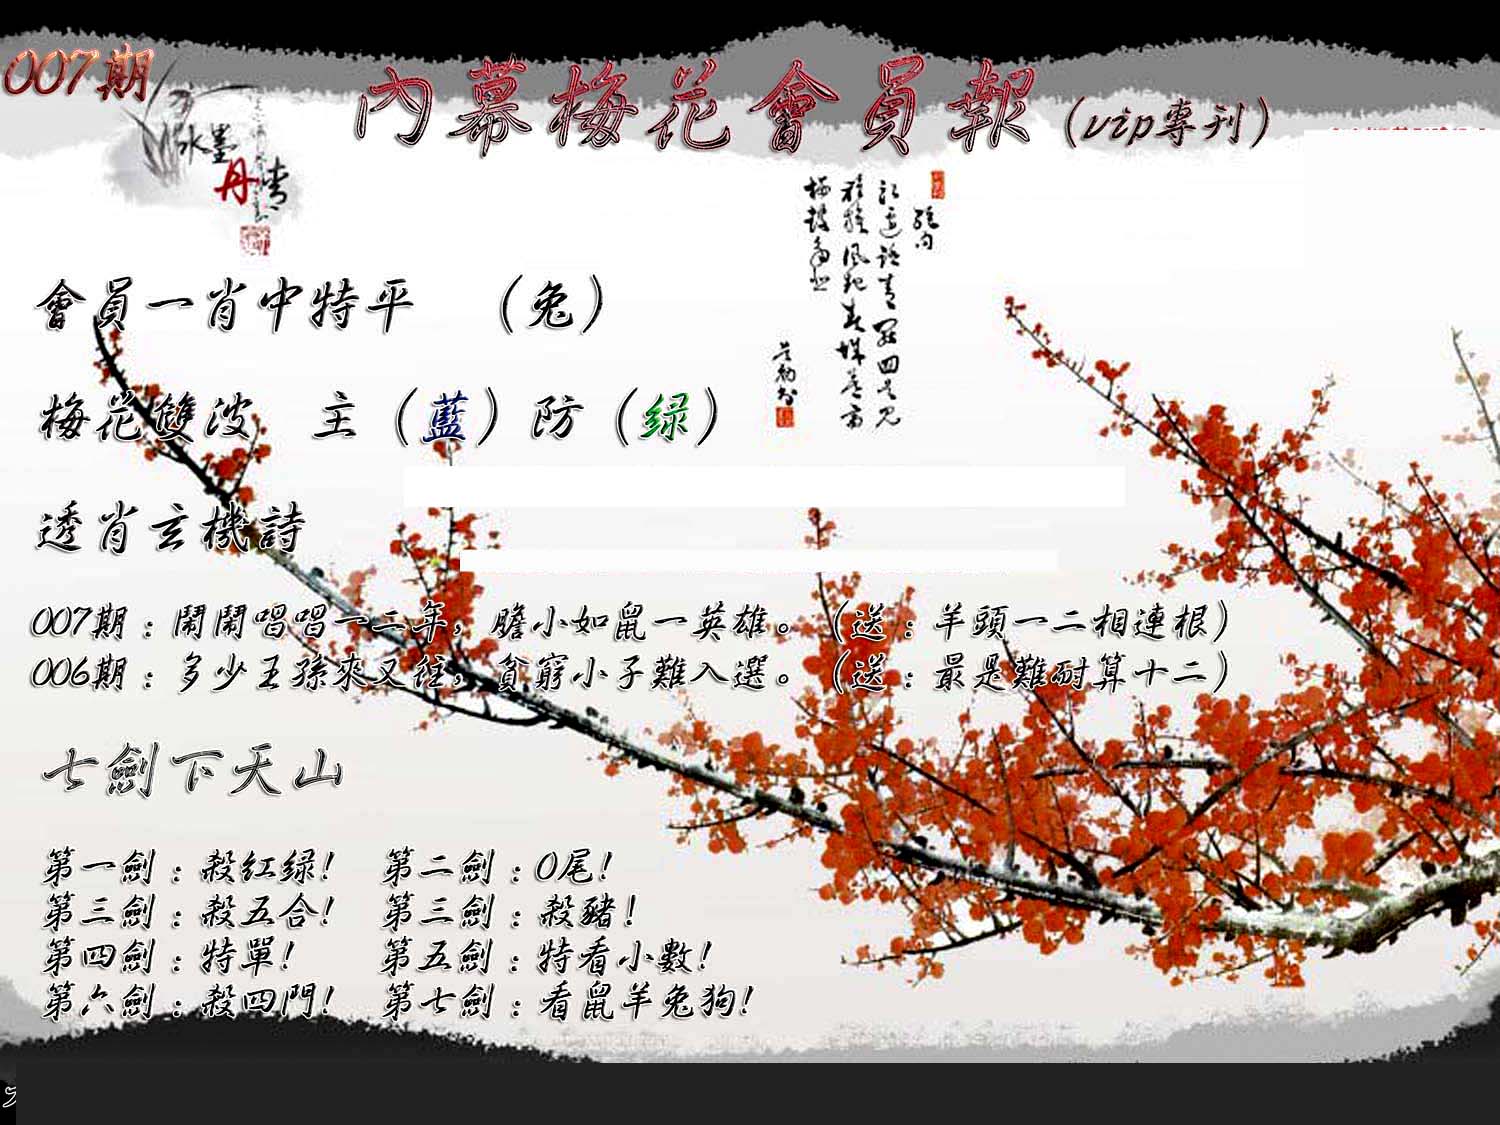 007期
內幕梅花會員報(vip專刊)
水墨
丹青
會員一肖中特平 (兔)
梅花雙波 主(藍)防(绿)
透肖玄機詩
007期:鬧鬧唱唱一二年,膽小如鼠一英雄。(送:羊頭一二相連根)
006期:多少王孫來又往,貧窮小子難入選。(送:最是難耐算十二)
七劍下天山
第一劍:殺红绿! 第二劍:0尾!
第三劍:殺五合! 第三劍:殺豬!
第四劍:特單! 第五劍:特看小數!
第六劍:殺四門! 第七劍:看鼠羊兔狗!